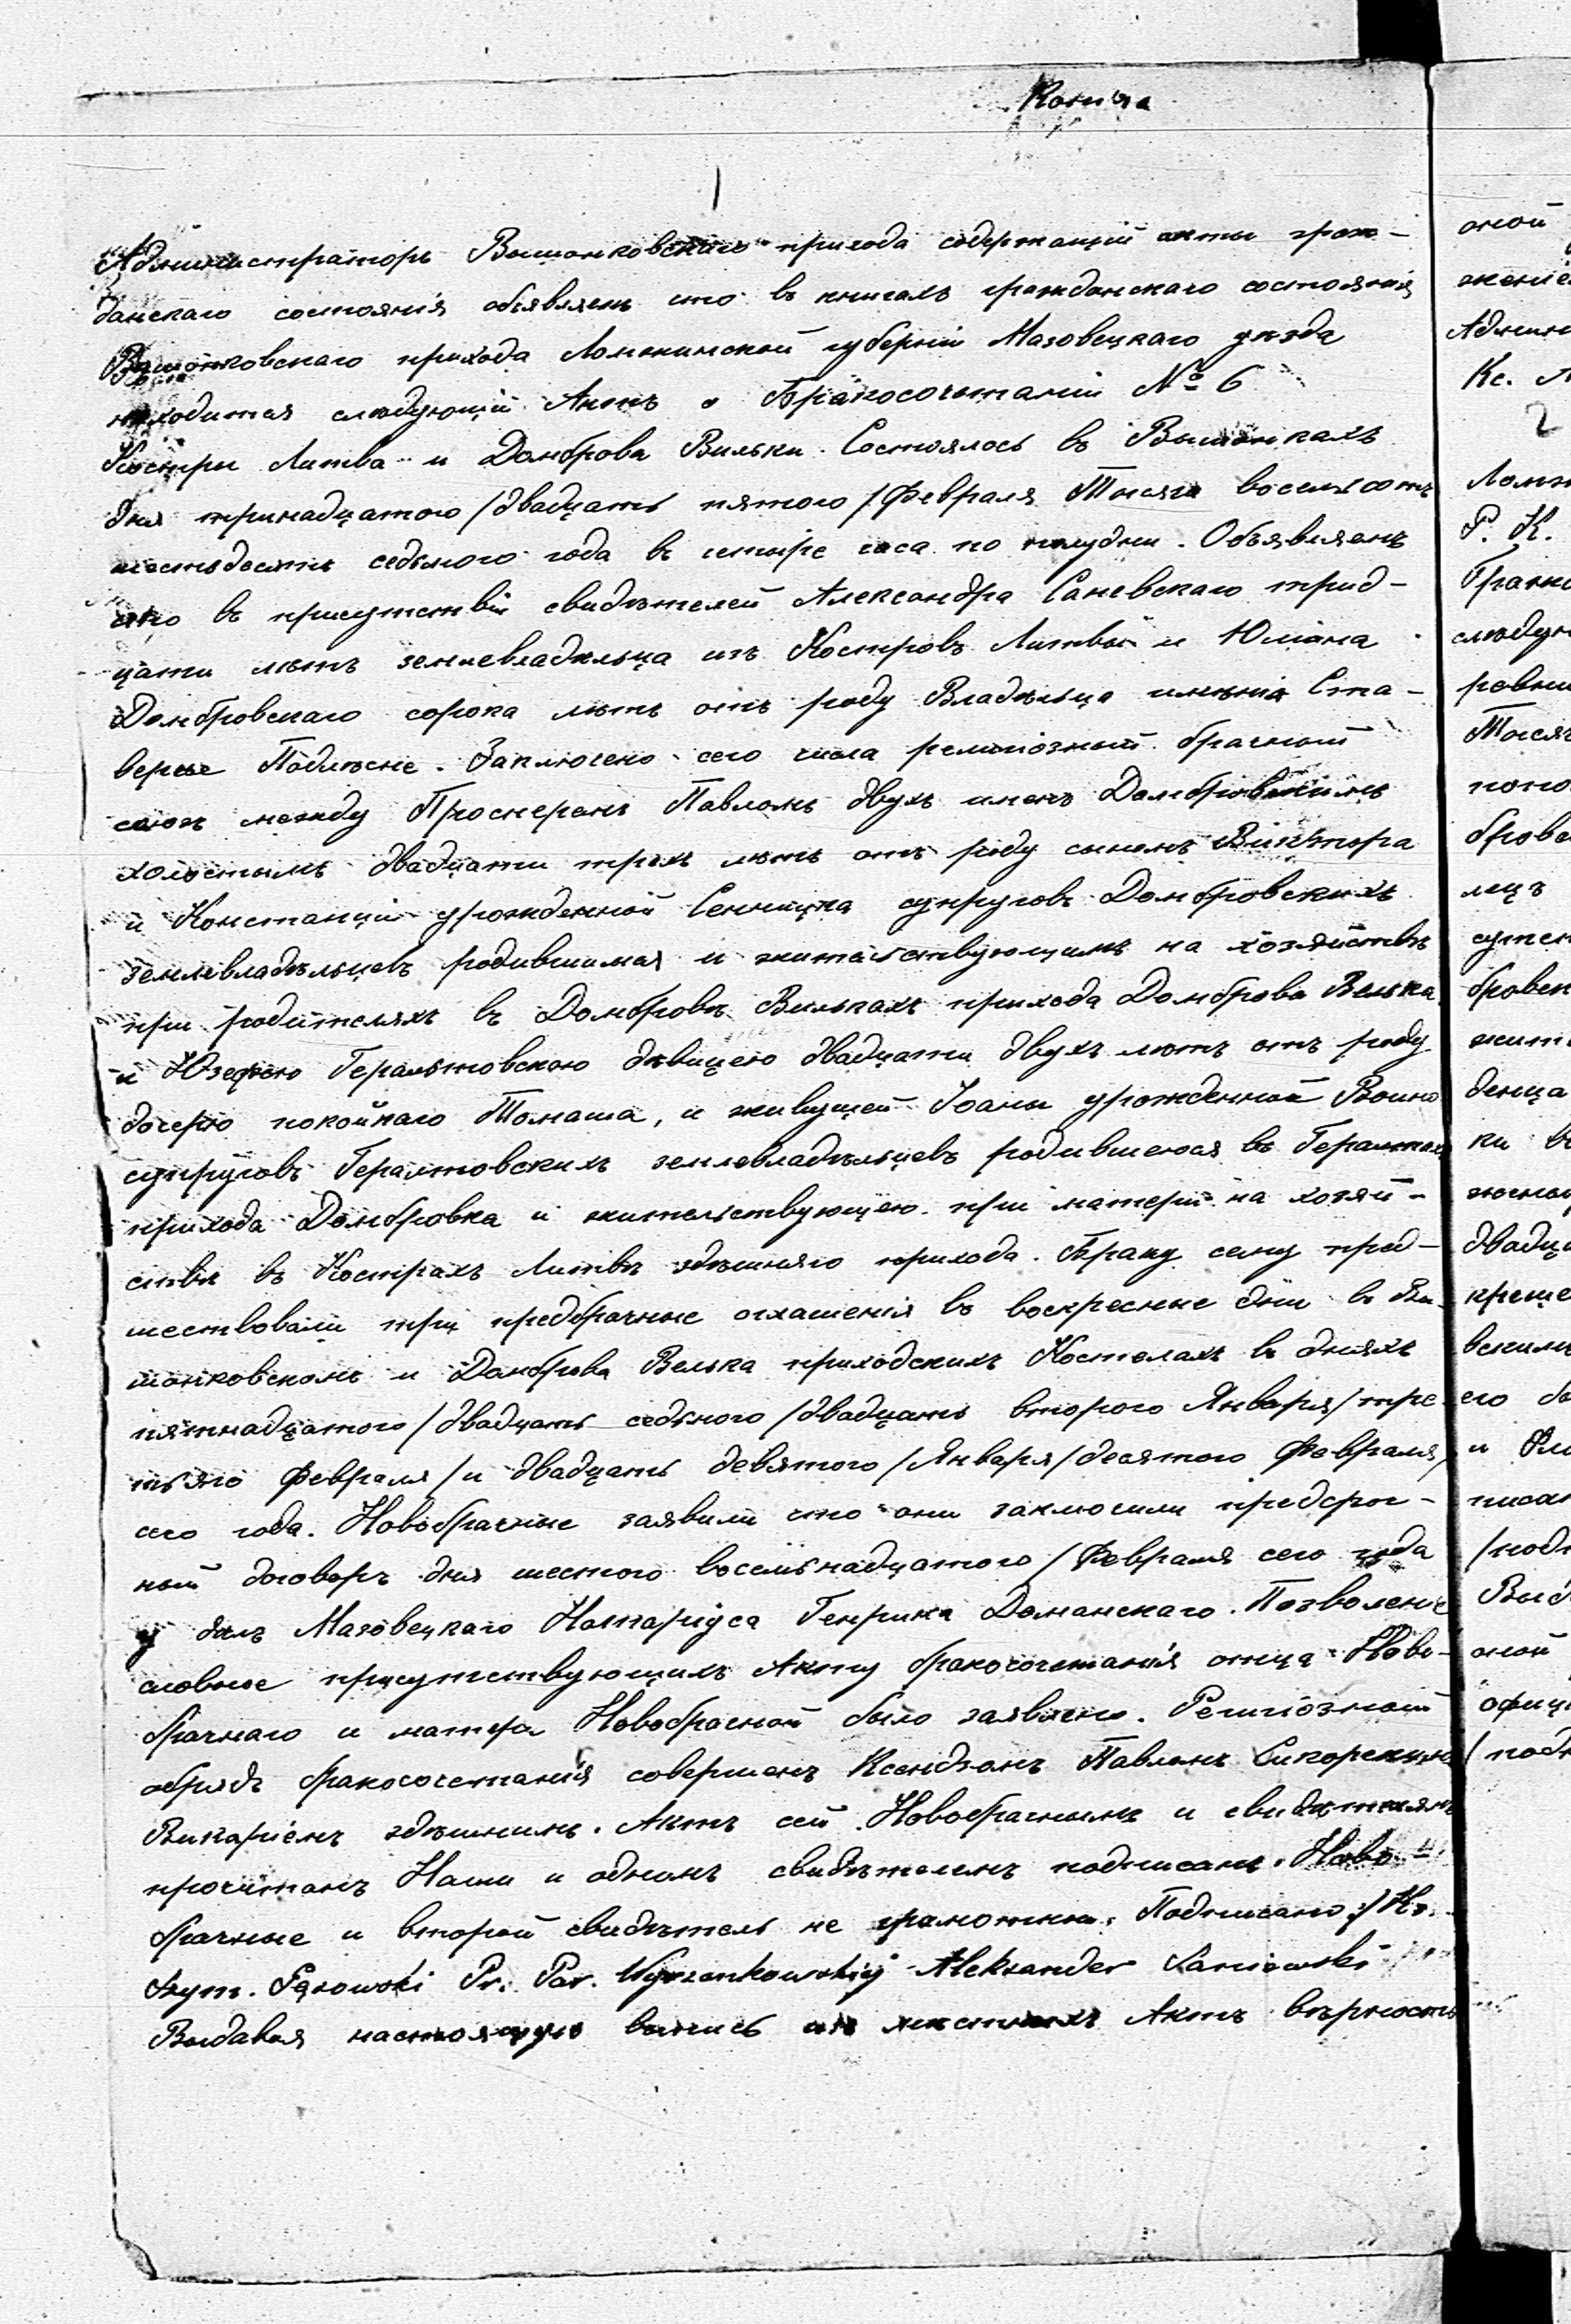 Копия
1
Администраторъ Вышонковскаго прихода содержащій акты граж-
данскаго состоянія объявляетъ что въ книгахъ гражданскаго состоянія
Вышонковскаго прихода Ломжинской губерніи Мазовецкаго уѣзда
находится слѣдующій Актъ о Бракосочетаніи № 6
Костры Литва и Домброва Вильки. Состоялось въ Вышонкахъ
дня тринадцатого /двадцать пятого/ Февраля Тысяча восемьсотъ
шестьдесятъ седьмого года въ четыре часа по полудни. Объявляемъ
что въ присутствіи свидѣтелей Александра Саневскаго трид-
цати лѣтъ землевладѣльца изъ Костровъ Литвы и Юліана
Домбровскаго сорока лѣтъ отъ роду Владѣльца имѣнія Ста-
верее Подлѣсне. Заключено сего числа религіозный брачный
союзъ между Просперомъ Павломъ двухъ именъ Домбровскимъ
холостымъ двадцати трехъ лѣтъ отъ роду сыномъ Виктора
и Констанціи урожденной Сенницка супруговъ Домбровскихъ
землевладѣльцевъ родившимся и жительствующимъ на хозяйствѣ
при родителяхъ въ Домбровѣ Вилькахъ прихода Домброва Велька
и Юзефою Геральтовскою дѣвицею двадцати двухъ лѣтъ отъ роду
дочерью покойнаго Томаша, и живущей Іоанны урожденной Войно
супруговъ Геральтовскихъ землевладѣльцевъ родившеюся въ Геральтахъ
прихода Домбровка и жительствующею при матери на хозяй-
ствѣ въ Кострахъ Литвѣ здѣшняго прихода. Браку сему пред-
шествовали три предбрачные оглашенія въ воскресные дни въ Вы-
шонковскомъ и Домброва Велька приходскихъ Костелахъ въ дняхъ
пятнадцатого /двадцать седьмого/ двадцать второго Января /тре-
тьяго Февраля/ и двадцать девятого /Января/ десятого Февраля/
сего года. Новобрачные заявили что они заключили предброч-
ный договоръ дня шестого восемьнадцатого /Февраля сего года
у Мазовецкаго Нотаріуса Генрика Доманскаго. Позволеніе
словное присутствующихъ Акту бракосочетанія отца Ново-
брачнаго и матери Новобрачной было заявлено. Религіозный
обрядъ бракосочетанія совершенъ Ксендзомъ Павломъ Сикорскимъ
Викаріемъ здѣшнимъ. Актъ сей Новобрачнымъ и свидѣтелямъ
прочитанъ Нами и однимъ свидѣтелемъ подписанъ. Ново-
брачные и второй свидѣтель не грамотны. Подписано:/ Кс.
Szym. Pr. Par. Wyszonkowskiej Aleksander Saniewski
Выдавая настоящую выпись Актъ вѣрность
оной
женіе
Админ
Кс.
2
Ломж
Р. К.
Гражд
слѣдую
ревни
Тысяч
попо
бровс
лецъ
бровск
жит
денца
ки
двадца
креще
вскимъ
его
и
писан
/подп
Выд
оной
офиц
/подп